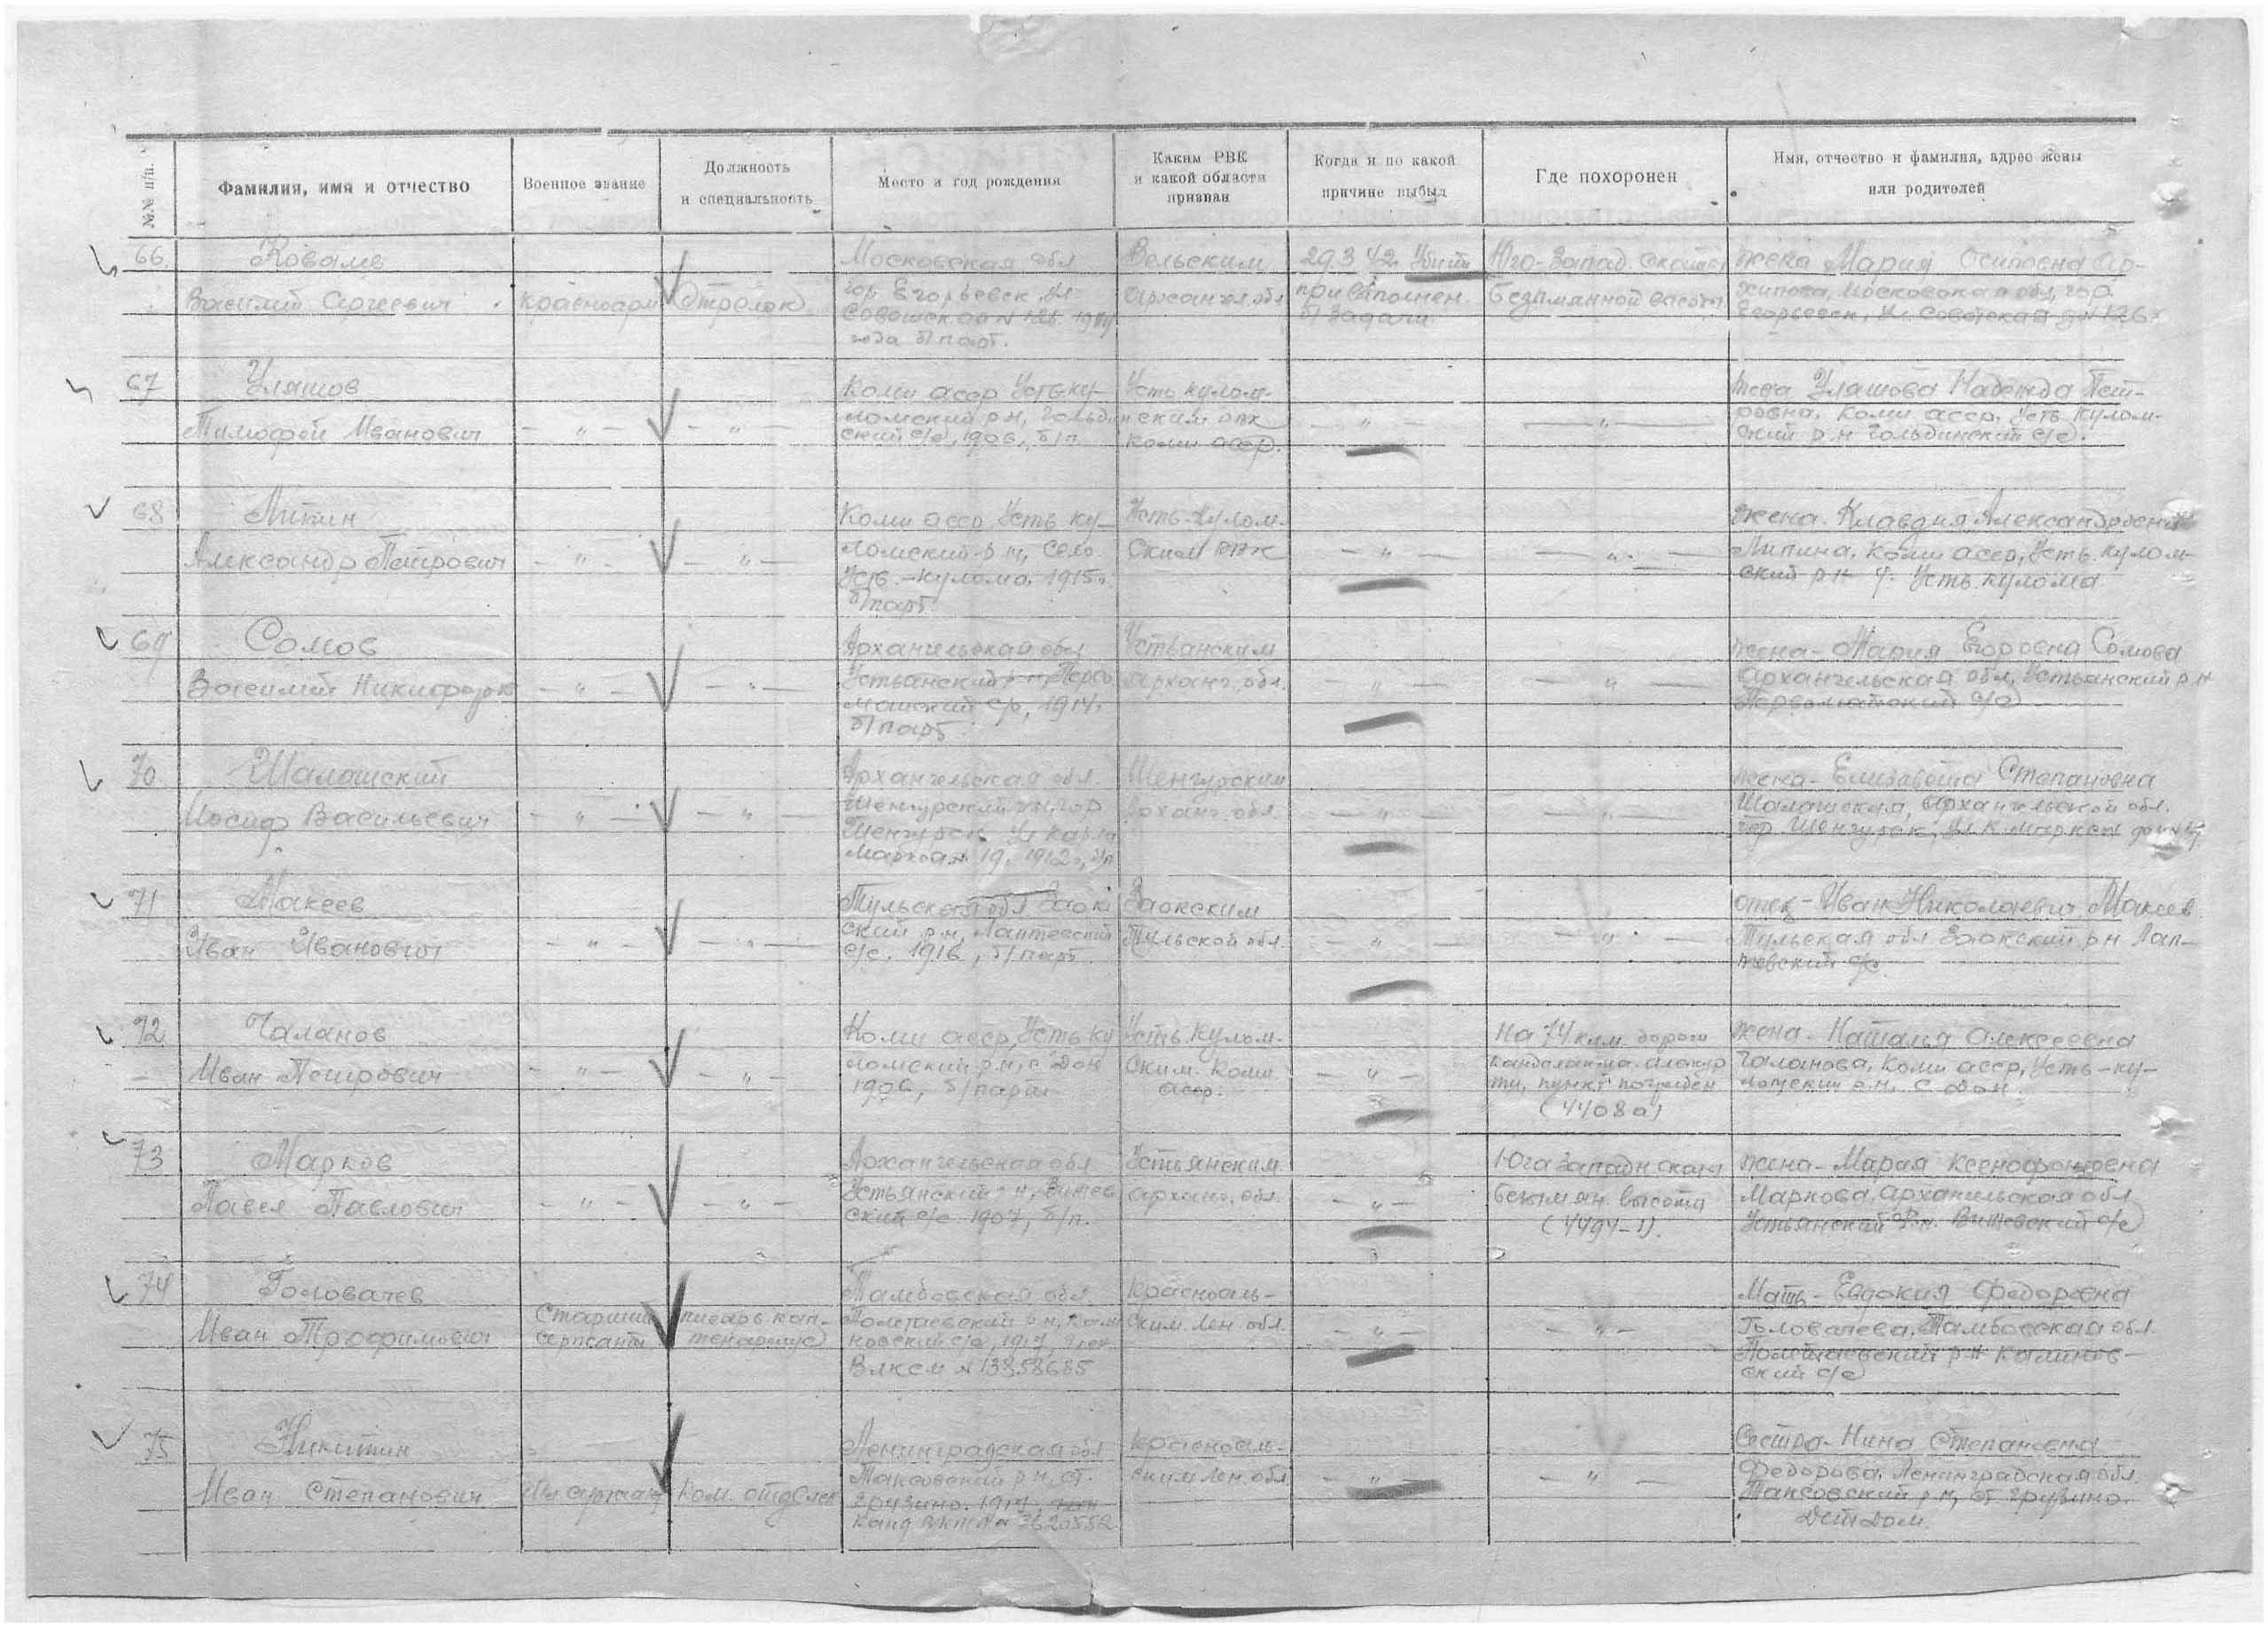 №№ п/п.
Фамилия, имя и отчество
Военное звание
Должность
и специальность
Место и год рождения
Каким РВК
и какой области
призван
Когда и по какой
причине выбыл
Где похоронен
Имя, отчество и фамилия, адрес жены
или родителей
66.
Василий Сергеевич
красноарм
Стрелок
Московская обл
гор. Егорьевск ул
года б/парт.
Вельским
Архангел. обл
29.3 42 Убит
при выполнен.
б/задачи
Юго-Запад. скаты
безымянной высоты
жена Мария Осиповна Ар-
хипова, Московская обл, гор.
Егорьевск, ул. Советская д. № 126
67
Уляшов
Тимофей Иванович
— " —
— " —
Коми асср Усть ку-
ломский р-н,
ский с/с, 1906., б/п.
Усть кулом-
ским рвк
Коми асср.
— " —
— " —
жена Уляшова Надежда Пет-
ровна, Коми асср, Усть кулом-
ский р-н с/с.
68
Липин
Александр Петрович
— " —
— " —
Коми асср Усть ку-
ломский р-н, село
Усть-кулома, 1915г.
б/парт.
Усть-кулом-
ским рвк
— " —
— " —
жена. Клавдия Александровна
Липина, Коми асср, Усть-кулом-
ский р-н Усть кулома
69
Сомов
Василий Никифоров
— " —
— " —
Архангельская обл
Устьянский р-н,
с/с, 1914г.
б/парт
Устьянским
Арханг. обл.
— " —
— " —
жена - Мария Егоровна Сомова
Архангельская обл, Устьянский р-н
Первомайский с/с
70
Шалашский
Иосиф Васильевич
— " —
— " —
Архангельская обл.
Шенкурский р-н, гор
Шенкурск ул Карла
Маркса 19. 1912г., б/п
Шенкурским
Арханг. обл.
— " —
— " —
жена - Елизавета Степановна
Шалашская, Архангельской обл.
гор. Шенкурск, ул. К. Маркса
71
Макеев
Иван Иванович
— " —
— " —
Тульская обл. Заок
ский р-н,
с/с. 1916, б/парт.
Заокским
Тульской обл.
— " —
— " —
отец - Иван Николаевич Макеев
Тульская обл Заокский р-н Лап-
тевский с/с
72
Чаланов
Иван Петрович
— " —
— " —
Коми асср, Усть ку
ломский р-н, с. Дон
1906, б/парт
Усть кулом-
ским. Коми
асср.
— " —
На 74 клм. дороги
Кандалакша-Алакур
ти, пункт погребен
(4408а)
жена - Наталья Алексеевна
Коми асср, Усть-ку-
ломский р.н. с. Дон.
73
Марков
Павел Павлович
— " —
— " —
Архангельская обл
Устьянский р-н,
ский с/с 1907, б/п.
Устьянским
Арханг. обл.
— " —
Юго западн скаты
безымян. высоты
(4494-1).
жена - Мария Ксенофонтовна
Маркова, Архангельская обл
Устьянский р-н. с/с
74
Головачев
Иван Трофимович
Старший
сержант
писарь кап-
тенармус
Тамбовская обл.
ский с/с, 1917, член
Влксм № 13858685
Красносель-
ским. Лен обл.
— " —
— " —
Мать - Евдокия Федоровна
Головачева, Тамбовская обл.
ский с/с
75
Никитин
Иван Степанович
Мл сержант
Ком. отделен
Ленинградская обл
р-н, ст.
Грузино. 1914,
канд ВКП/б № 3620552
Красносель-
ским Лен обл
— " —
— " —
Сестра - Нина Степановна
Федорова, Ленинградская обл.
р-н, ст. Грузино.
Дет Дом.